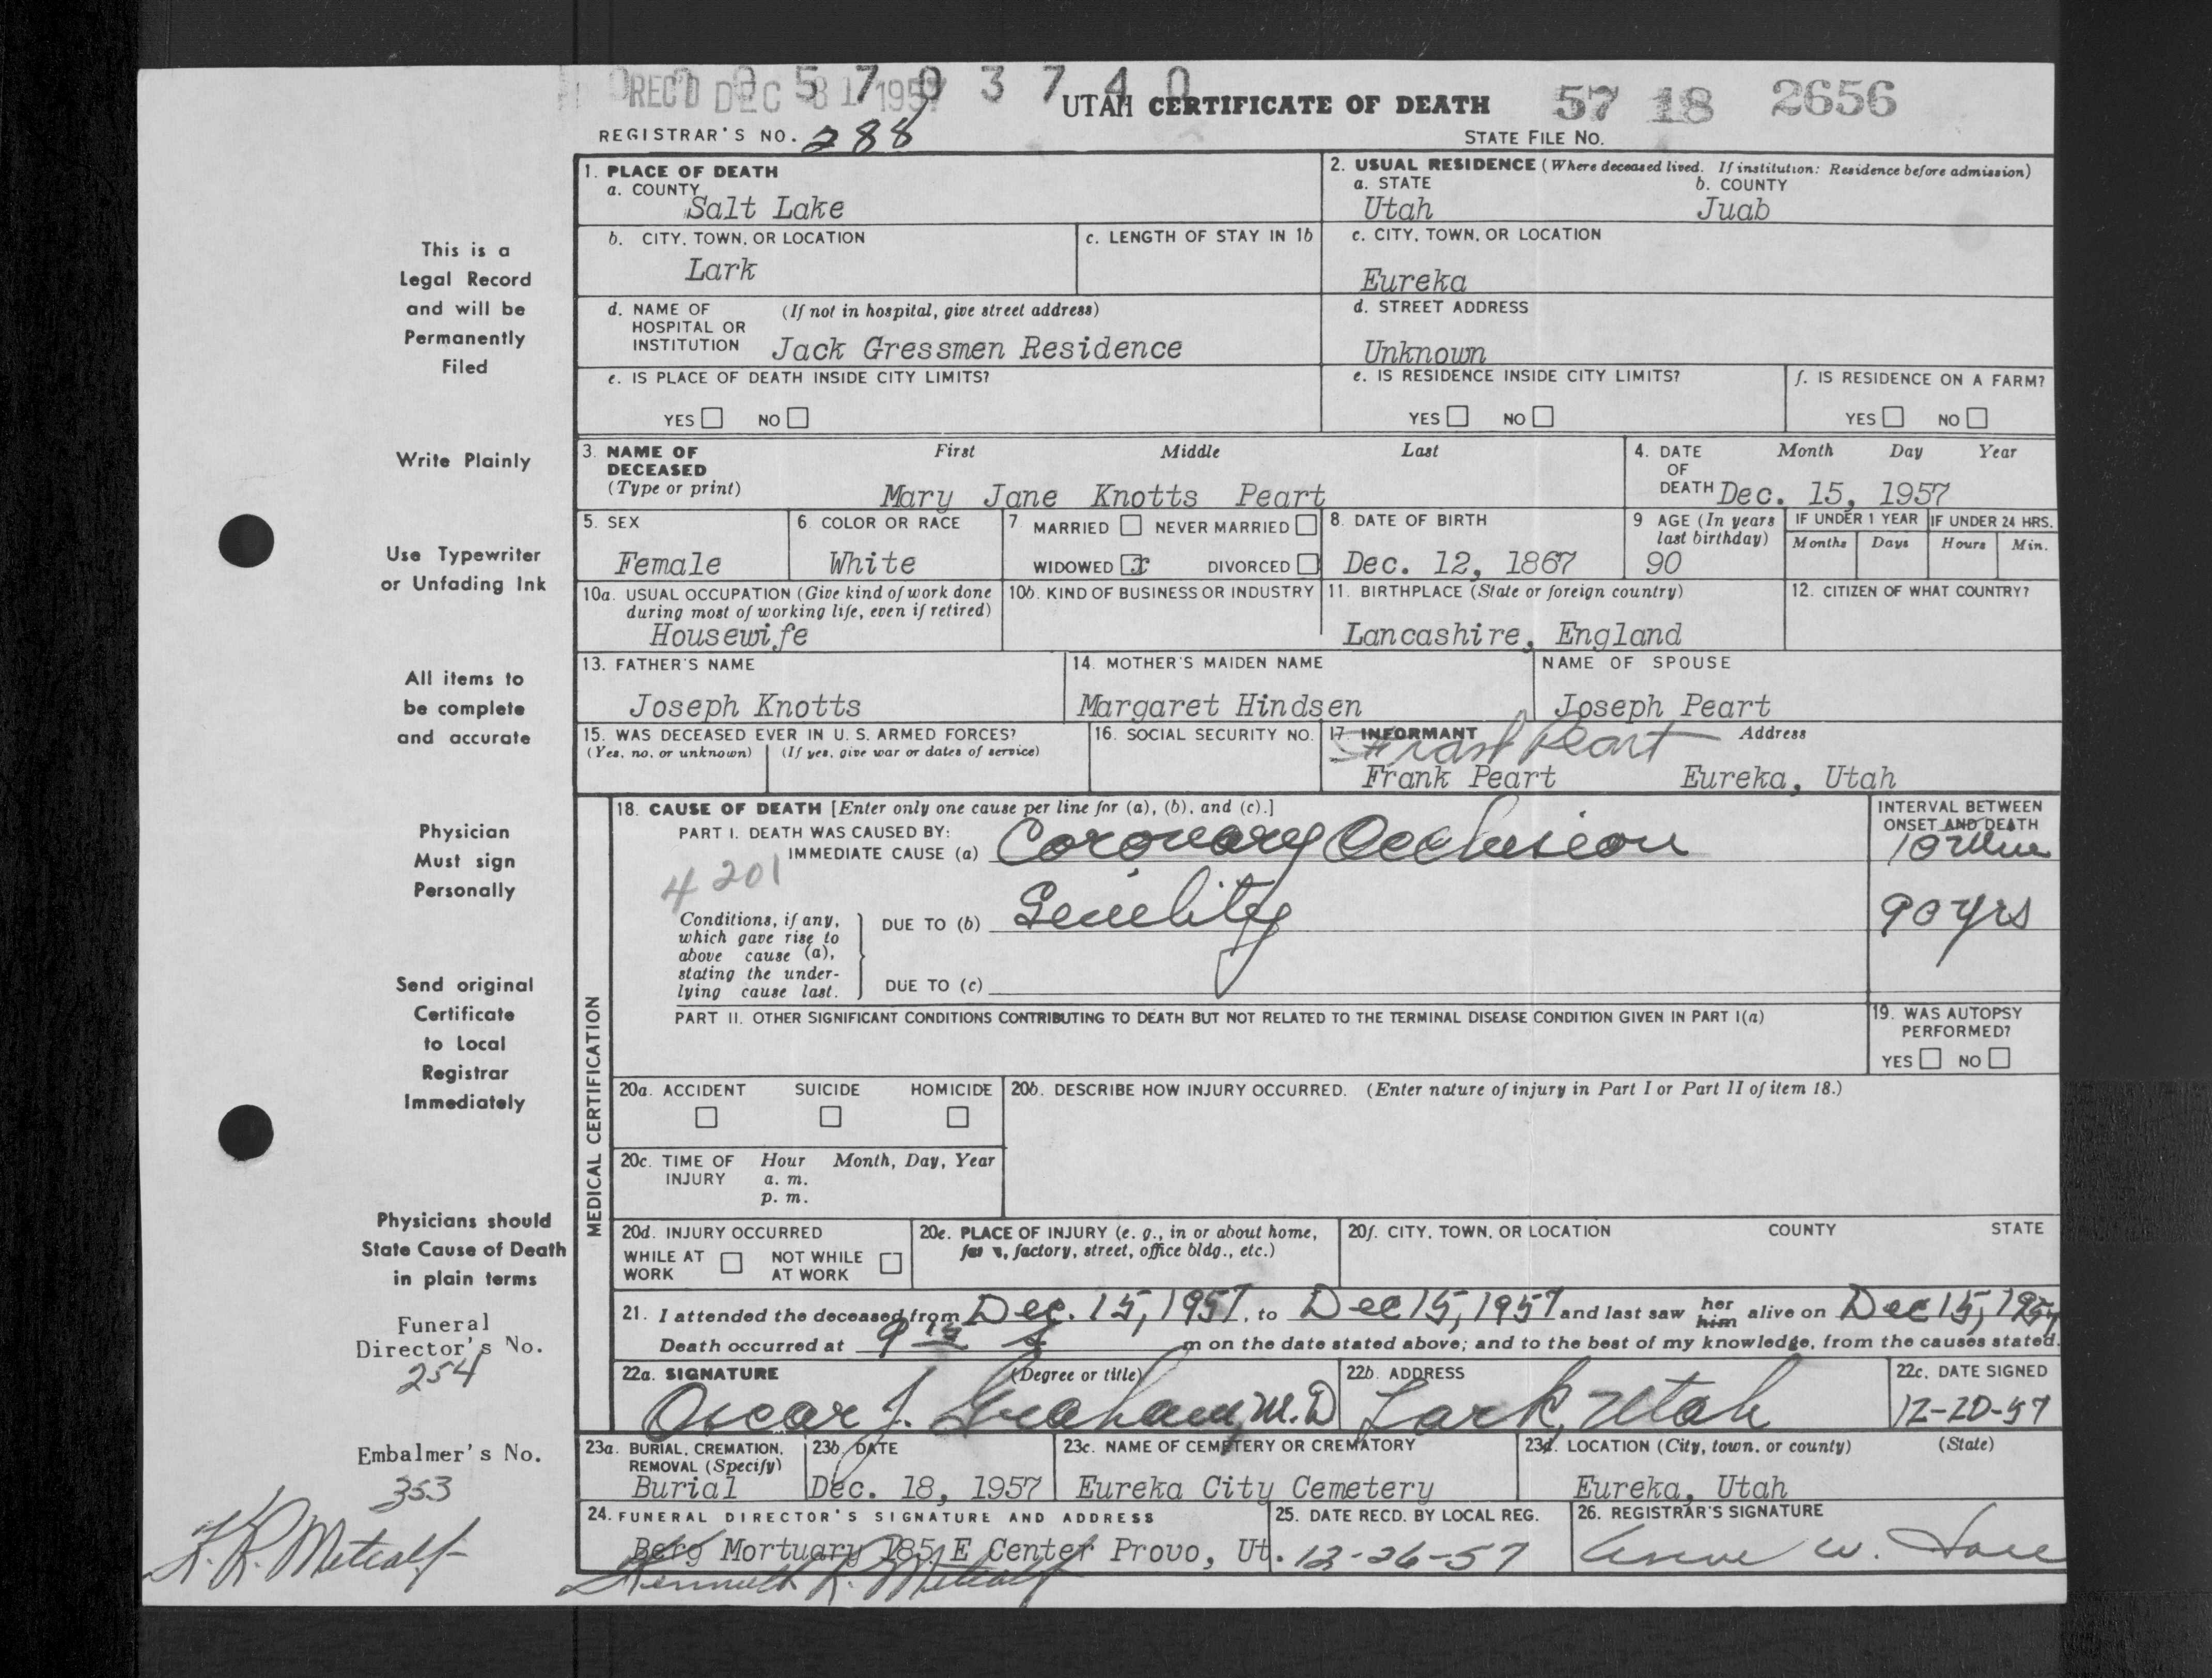 REC'D DEC 31 1957
5 7 0 3 7 4 0
UTAH CERTIFICATE OF DEATH
57 18 2656
REGISTRAR'S NO. 288
STATE FILE NO.
This is a
Legal Record
and will be
Permanently
Filed
Write Plainly
Use Typewriter
or Unfading Ink
All items to
be complete
and accurate
Physician
Must sign
Personally
Send original
Certificate
to Local
Registrar
Immediately
Physicians should
State Cause of Death
in plain terms
Funeral
Director's No.
254
Embalmer's No.
353
K. R. Metcalf
1. PLACE OF DEATH
a. COUNTY
Salt Lake
2. USUAL RESIDENCE (Where deceased lived. If institution: Residence before admission)
a. STATE b. COUNTY
Utah Juab
b. CITY, TOWN, OR LOCATION
Lark
c. LENGTH OF STAY IN 1b
c. CITY, TOWN, OR LOCATION
Eureka
d. NAME OF (If not in hospital, give street address)
HOSPITAL OR
INSTITUTION Jack Gressmen Residence
d. STREET ADDRESS
Unknown
e. IS PLACE OF DEATH INSIDE CITY LIMITS?
YES NO
e. IS RESIDENCE INSIDE CITY LIMITS?
YES NO
f. IS RESIDENCE ON A FARM?
YES NO
3. NAME OF First Middle Last
DECEASED
(Type or print)
Mary Jane Knotts Peart
4. DATE Month Day Year
OF
DEATH Dec. 15, 1957
5. SEX
Female
6. COLOR OR RACE
White
7. MARRIED NEVER MARRIED
WIDOWED x DIVORCED
8. DATE OF BIRTH
Dec. 12, 1867
9 AGE (In years
last birthday)
90
IF UNDER 1 YEAR IF UNDER 24 HRS.
Months Days Hours Min.
10a. USUAL OCCUPATION (Give kind of work done
during most of working life, even if retired)
Housewife
10b. KIND OF BUSINESS OR INDUSTRY
11. BIRTHPLACE (State or foreign country)
Lancashire, England
12. CITIZEN OF WHAT COUNTRY?
13. FATHER'S NAME
Joseph Knotts
14. MOTHER'S MAIDEN NAME
Margaret Hindsen
NAME OF SPOUSE
Joseph Peart
15. WAS DECEASED EVER IN U. S. ARMED FORCES?
(Yes, no, or unknown) (If yes, give war or dates of service)
16. SOCIAL SECURITY NO.
17. INFORMANT Address
Frank Peart
Frank Peart Eureka, Utah
MEDICAL CERTIFICATION
18. CAUSE OF DEATH [Enter only one cause per line for (a), (b), and (c).]
PART I. DEATH WAS CAUSED BY:
IMMEDIATE CAUSE (a) Coronary Occlusion
4201
Conditions, if any,
which gave rise to
above cause (a),
stating the under-
lying cause last.
DUE TO (b) Senility
DUE TO (c)
INTERVAL BETWEEN
ONSET AND DEATH
10 Min
90 yrs
PART II. OTHER SIGNIFICANT CONDITIONS CONTRIBUTING TO DEATH BUT NOT RELATED TO THE TERMINAL DISEASE CONDITION GIVEN IN PART I(a)
19. WAS AUTOPSY
PERFORMED?
YES NO
20a. ACCIDENT SUICIDE HOMICIDE
20b. DESCRIBE HOW INJURY OCCURRED. (Enter nature of injury in Part I or Part II of item 18.)
20c. TIME OF Hour Month, Day, Year
INJURY a. m.
p. m.
20d. INJURY OCCURRED
WHILE AT NOT WHILE
WORK AT WORK
20e. PLACE OF INJURY (e. g., in or about home,
factory, street, office bldg., etc.)
20f. CITY, TOWN, OR LOCATION COUNTY STATE
21. I attended the deceased from Dec. 15, 1957, to Dec 15, 1957 and last saw her him alive on Dec 15, 1957
Death occurred at 9 m on the date stated above; and to the best of my knowledge, from the causes stated.
22a. SIGNATURE (Degree or title)
Oscar J. Graham, M.D
22b. ADDRESS
Lark, Utah
22c. DATE SIGNED
12-20-57
23a. BURIAL, CREMATION,
REMOVAL (Specify)
Burial
23b. DATE
Dec. 18, 1957
23c. NAME OF CEMETERY OR CREMATORY
Eureka City Cemetery
23d. LOCATION (City, town, or county) (State)
Eureka, Utah
24. FUNERAL DIRECTOR'S SIGNATURE AND ADDRESS
Berg Mortuary 185 E Center Provo, Ut.
Kenneth R. Metcalf
25. DATE RECD. BY LOCAL REG.
12-26-57
26. REGISTRAR'S SIGNATURE
W.